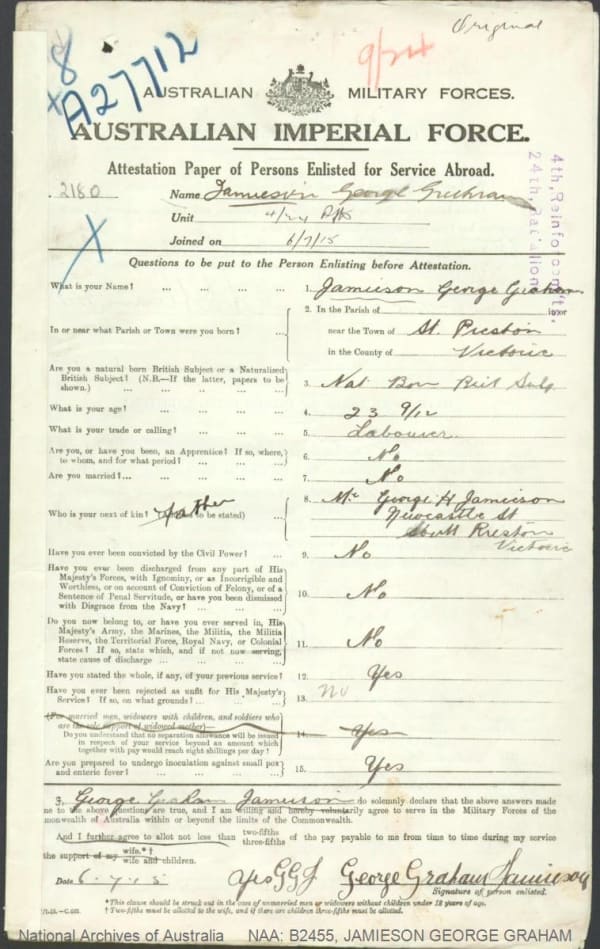 Original
8
x A27712
9/24
AUSTRALIAN MILITARY FORCES.
AUSTRALIAN IMPERIAL FORCE.
Attestation Paper of Persons Enlisted for Service Abroad.
4th, Reinforcem'ts,
24th, Battalion.
2180 Name Jamieson George Graham
Unit 4/24 Rfts
Joined on 6/7/15
X
Questions to be put to the Person Enlisting before Attestation.
What is your Name? ... ... ... ... 1. Jamieson George Graham
In or near what Parish or Town were you born? ... 2. In the Parish of in or
near the Town of St. Preston
in the County of Victoria
Are you a natural born British Subject or a Naturalized
British Subject? (N.B.—If the latter, papers to be
shown.) ... ... ... ... 3. Nat Born Brit Subj
What is your age? ... ... ... ... 4. 23 9/12
What is your trade or calling? ... ... ... 5. Labourer.
Are you, or have you been, an Apprentice? If so, where,
to whom, and for what period? ... ... ... 6. No
Are you married?... ... ... ... 7. No
Who is your next of kin? (to be stated) father 8. Mr George H Jamieson
Newcastle St
South Preston
Victoria
Have you ever been convicted by the Civil Power? ... 9. No
Have you ever been discharged from any part of His
Majesty's Forces, with Ignominy, or as Incorrigible and
Worthless, or on account of Conviction of Felony, or of a
Sentence of Penal Servitude, or have you been dismissed
with Disgrace from the Navy? ... ... ... 10. No
Do you now belong to, or have you ever served in, His
Majesty's Army, the Marines, the Militia, the Militia
Reserve, the Territorial Force, Royal Navy, or Colonial
Forces? If so, state which, and if not now serving,
state cause of discharge ... ... ... ... 11. No
Have you stated the whole, if any, of your previous service? 12. Yes
Have you ever been rejected as unfit for His Majesty's
Service? If so, on what grounds? ... ... ... 13. No
(For married men, widowers with children, and soldiers who
are the sole support of widowed mother)—
Do you understand that no separation allowance will be issued
in respect of your service beyond an amount which
together with pay would reach eight shillings per day? 14. Yes
Are you prepared to undergo inoculation against small pox
and enteric fever? ... ... ... ... 15. Yes
I, George Graham Jamieson do solemnly declare that the above answers made
me to the above questions are true, and I am willing and hereby voluntarily agree to serve in the Military Forces of the
monwealth of Australia within or beyond the limits of the Commonwealth.
And I further agree to allot not less than two-fifths three-fifths of the pay payable to me from time to time during my service
the support of my wife.*† wife and children.
Date 6.7.15 Yes GGJ George Graham Jamieson
Signature of person enlisted.
* This clause should be struck out in the case of unmarried men or widowers without children under 18 years of age.
† Two-fifths must be allotted to the wife, and if there are children three-fifths must be allotted.
National Archives of Australia NAA: B2455, JAMIESON GEORGE GRAHAM